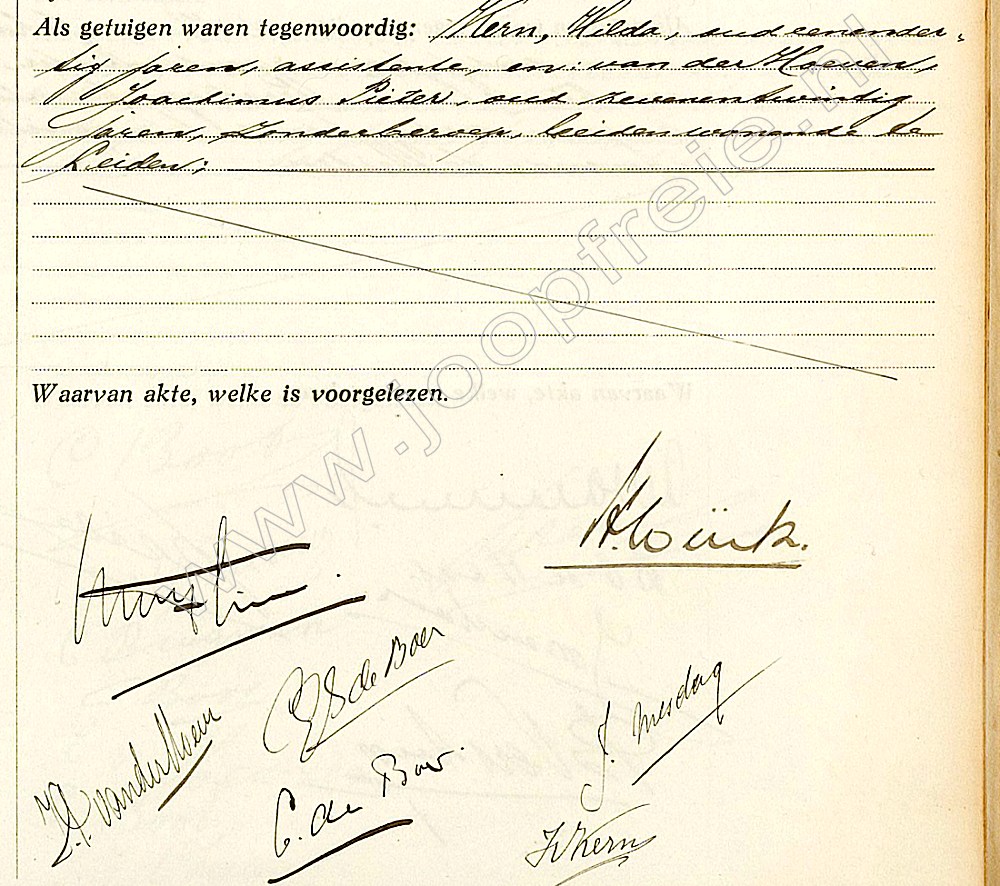 Als getuigen waren tegenwoordig: Kern, Hilda, oud eenender-
tig jaren, assistente, en: van der Hoeven,
Joachimus Pieter, oud zevenentwintig
jaren, zonder beroep, beiden wonende te
Leiden;
Waarvan akte, welke is voorgelezen.
www.joopfreie.nl
de Boer
J. P. van der Hoeven
J. Mesdag
C. de Boer
H Kern